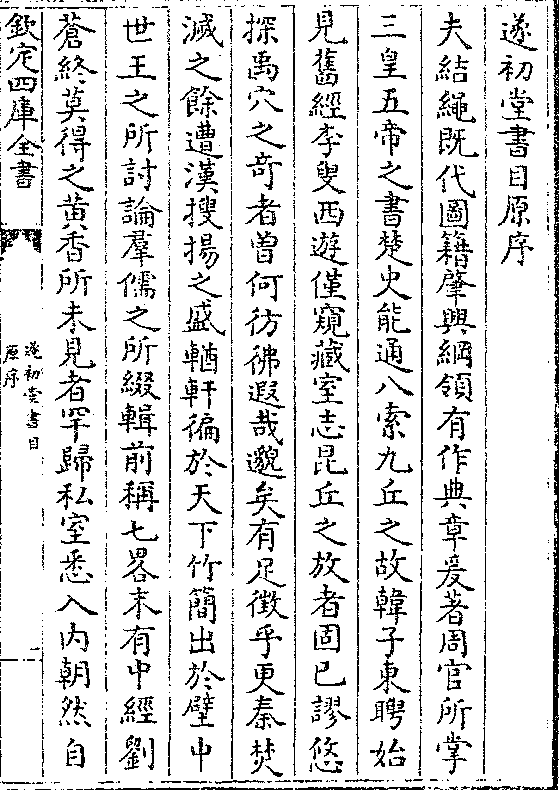 遂初堂書目原序
夫結繩既代圖籍肇興綱領有作典章爰著周官所掌
三皇五帝之書楚史能通八索九丘之故韓子東聘始
見舊經李叟西遊僅窺藏室志昆丘之放者固已謬悠
探禹穴之奇者曽何彷彿遐哉邈矣有足徴乎更秦焚
滅之餘遭漢搜揚之盛輶軒徧於天下竹簡出於壁中
世王之所討論羣儒之所綴輯前稱七畧末有中經劉
蒼終莫得之黄香所未見者罕歸私室悉入内朝然自
欽定四庫全書
遂初堂書目
原序
一